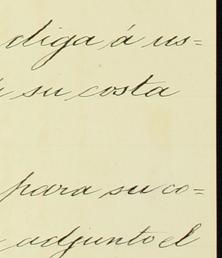 diga á us=
su costa
para su co=
adjunto el